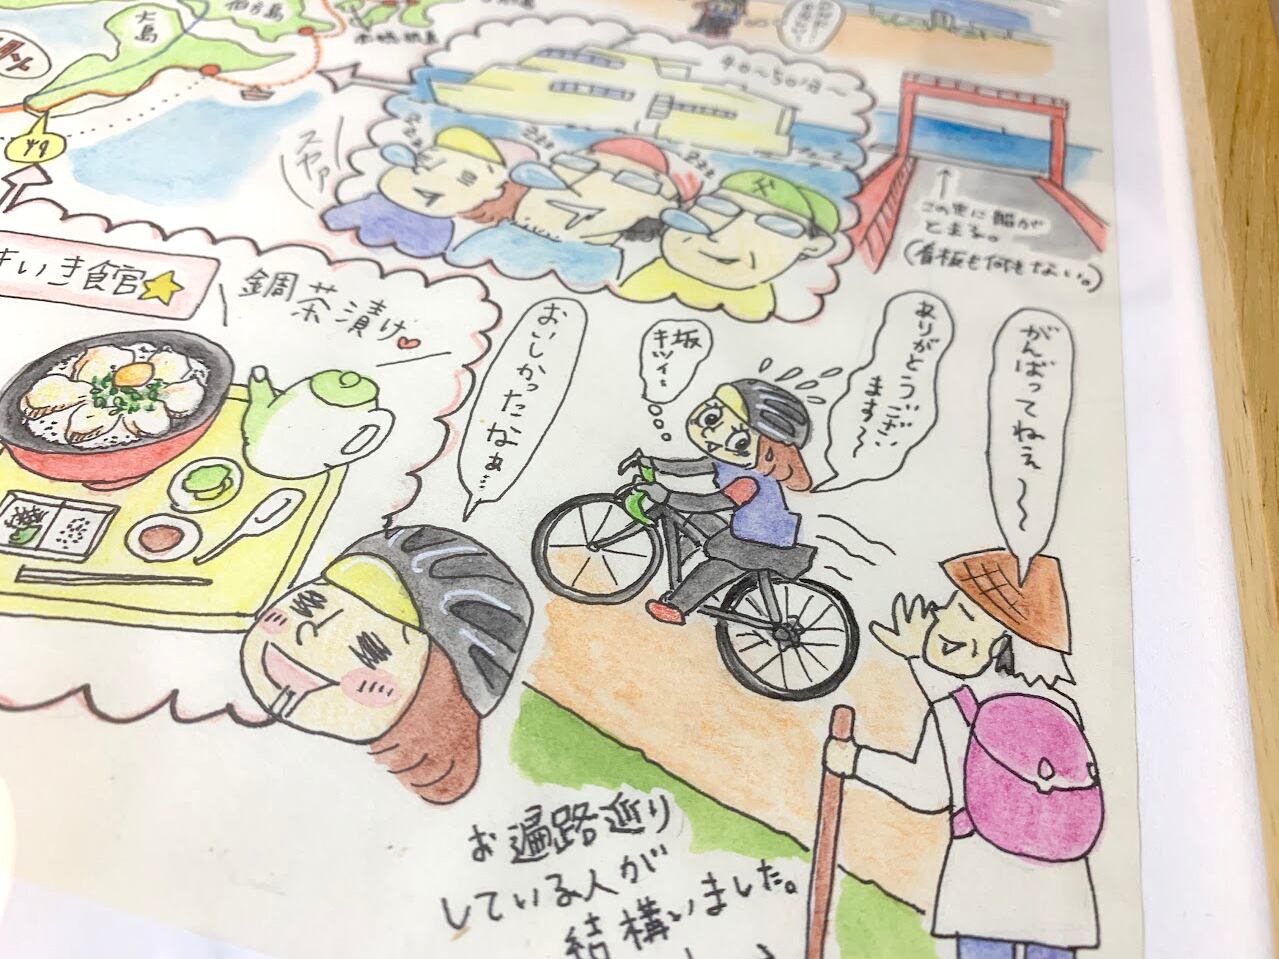 大
島
伯方島
40〜50分〜
スヤァ
zzz
zzz
zzz
父
この先に船が
とまる。
(看板も何もない。)
きいき食官
鯛茶漬け
おいしかったなぁ…
坂
キツイ〜
ありがとうござい
ます〜
がんばってねぇ〜
お遍路巡り
している人が
結構いました。